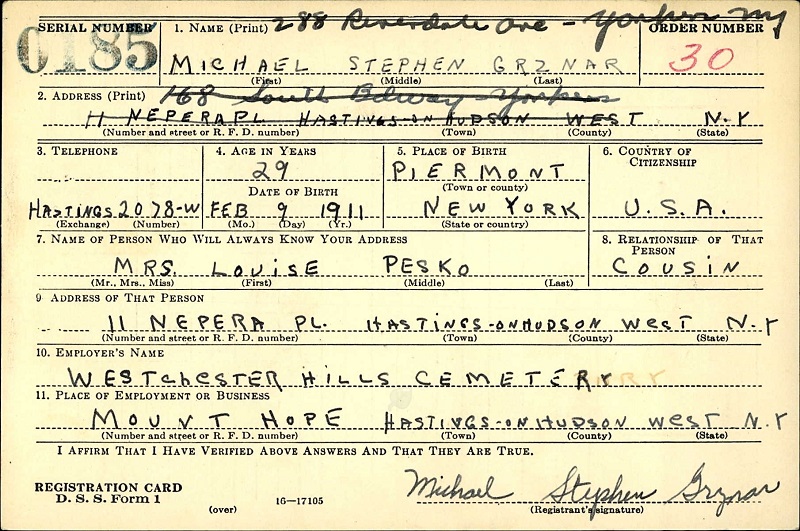 288 Riverdale Ave - Yonkers NY
SERIAL NUMBER 1. NAME (Print) ORDER NUMBER
0185 MICHAEL STEPHEN GRZNAR 30
(First) (Middle) (Last)
2. ADDRESS (Print) 168 South Bdway Yonkers
11 NEPERA PL HASTINGS-ON HUDSON WEST N.Y
(Number and street or R. F. D. number) (Town) (County) (State)
3. TELEPHONE 4. AGE IN YEARS 5. PLACE OF BIRTH 6. COUNTRY OF
CITIZENSHIP
29 PIERMONT
DATE OF BIRTH (Town or county)
HASTINGS 2078-W FEB 9 1911 NEW YORK U.S.A.
(Exchange) (Number) (Mo.) (Day) (Yr.) (State or country)
7. NAME OF PERSON WHO WILL ALWAYS KNOW YOUR ADDRESS 8. RELATIONSHIP OF THAT
PERSON
MRS. LOUISE PESKO COUSIN
(Mr., Mrs., Miss) (First) (Middle) (Last)
9 ADDRESS OF THAT PERSON
11 NEPERA PL. HASTINGS-ON HUDSON WEST N.Y
(Number and street or R. F. D. number) (Town) (County) (State)
10. EMPLOYER'S NAME
WESTCHESTER HILLS CEMETERY
11. PLACE OF EMPLOYMENT OR BUSINESS
MOUNT HOPE HASTINGS-ON HUDSON WEST N.Y
(Number and street or R. F. D. number) (Town) (County) (State)
I AFFIRM THAT I HAVE VERIFIED ABOVE ANSWERS AND THAT THEY ARE TRUE.
REGISTRATION CARD
D. S. S. Form 1 (over) 16-17105 Michael Stephen Grznar
(Registrant's signature)